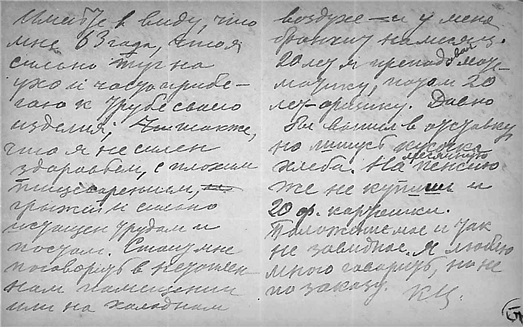 Имейте в виду, что
мне 63 года, что я
сильно туг на
ухо и часто прибе-
гаю к трубе своего
изделия; что также,
что я не силен
здоровьем, с плохим
пищеварением,
грыжей и сильно
истощен трудом и
постом. Стоит мне
поговорить в неотоплен-
ном помещении
или на холодном
воздухе — и у меня
бронхит на месяц.
20 лет я преподавал мате-
матику, потом 20
лет физику. Давно
бы вышел в отставку,
но лишусь куска
хлеба. На месячную пенсию
же не купишь и
20 ф. картошки.
Положение мое и так
не завидное. Я люблю
много говорить, но не
по заказу. КЦ.